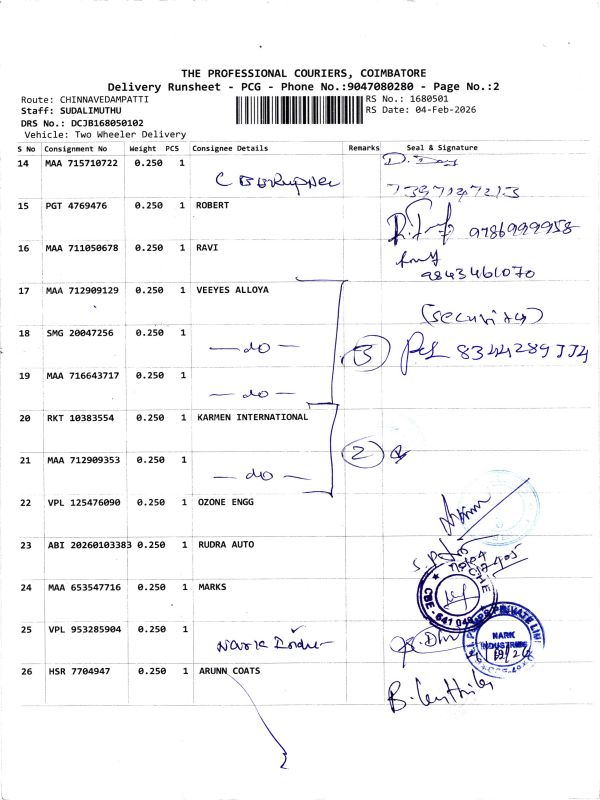 THE PROFESSIONAL COURIERS, COIMBATORE
Delivery Runsheet - PCG - Phone No.:9047080280 - Page No.:2
Route: CHINNAVEDAMPATTI
RS No.: 1680501
Staff: SUDALIMUTHU
RS Date: 04-Feb-2026
DRS No.: DCJB168050102
Vehicle: Two Wheeler Delivery
S No Consignment No Weight PCS Consignee Details Remarks Seal & Signature
14 MAA 715710722 0.250 1
15 PGT 4769476 0.250 1 ROBERT 9786999958
16 MAA 711050678 0.250 1 RAVI
9843461070
17 MAA 712909129 0.250 1 VEEYES ALLOYA
(Security)
18 SMG 20047256 0.250 1
— do — 3
19 MAA 716643717 0.250 1
— do —
20 RKT 10383554 0.250 1 KARMEN INTERNATIONAL
2
21 MAA 712909353 0.250 1
— do —
22 VPL 125476090 0.250 1 OZONE ENGG
23 ABI 20260103383 0.250 1 RUDRA AUTO
24 MAA 653547716 0.250 1 MARKS
CBE - 641 049
25 VPL 953285904 0.250 1
PRIVATE
NARK
INDUSTRIES
26 HSR 7704947 0.250 1 ARUNN COATS